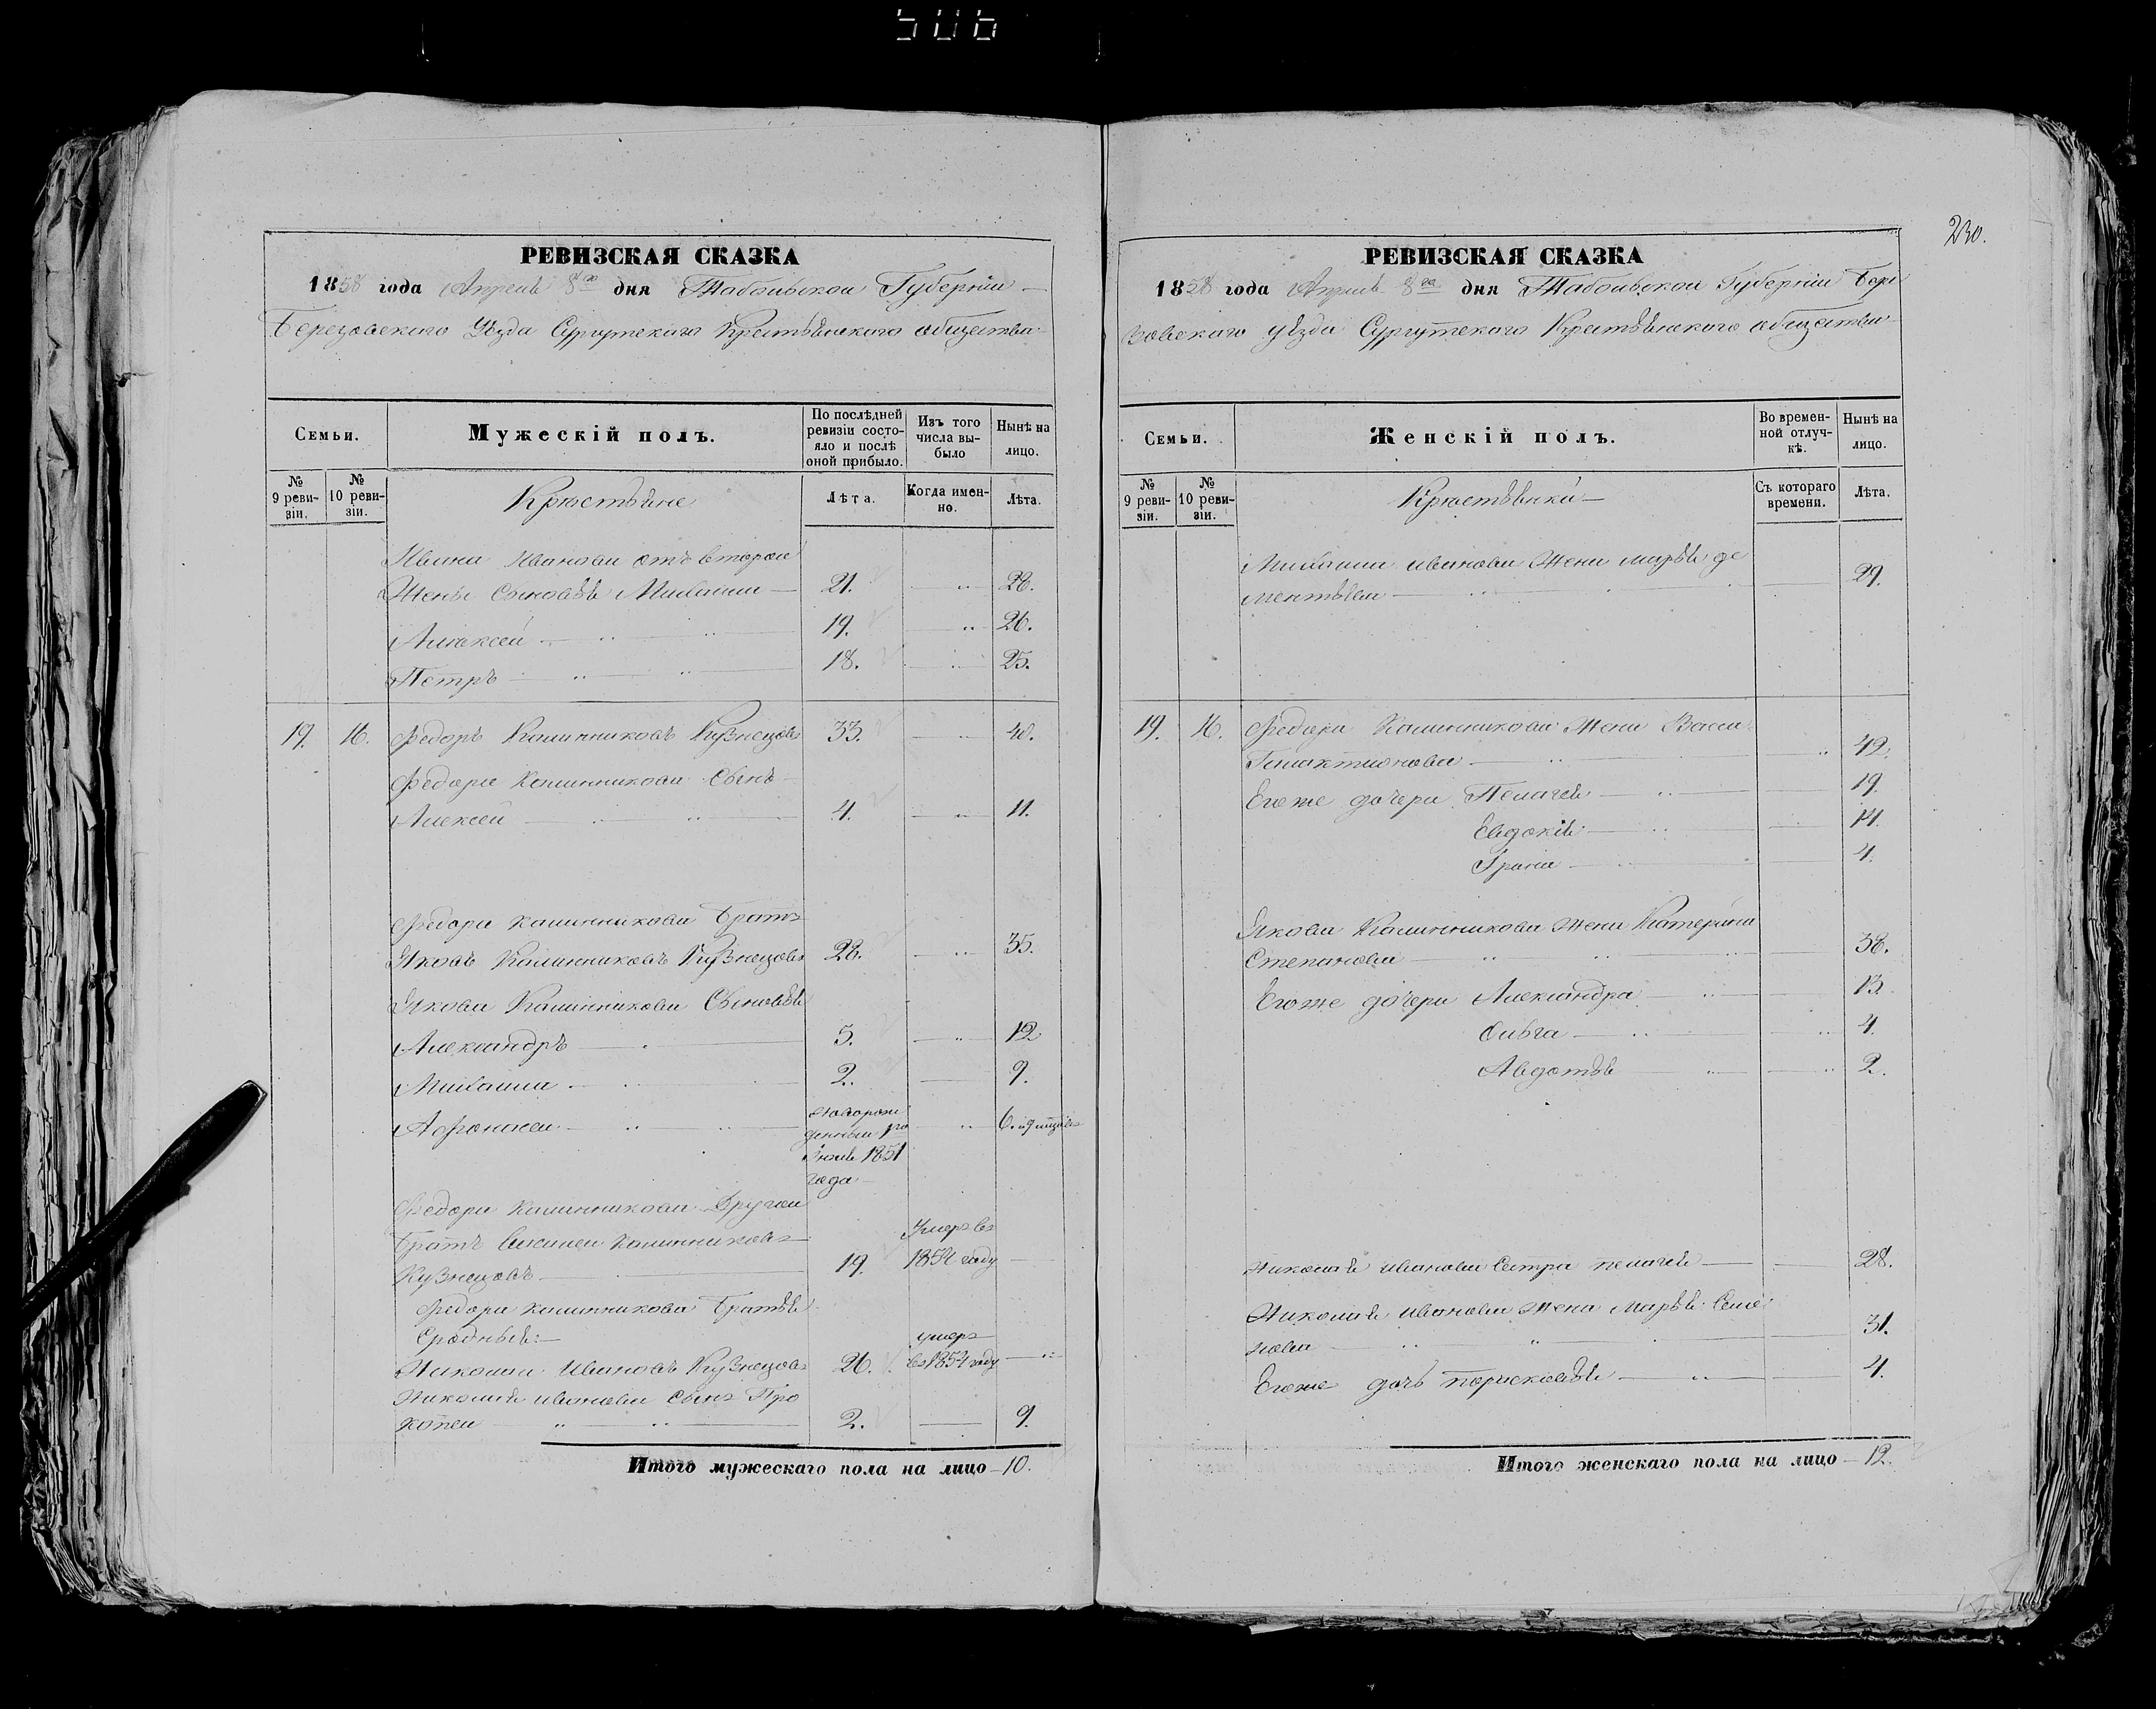 506
РЕВИЗСКАЯ СКАЗКА
1858 года Апреля 8го дня Табольской Губернии
Березовскаго Уезда Сургутскаго Крестьянскаго общества
Семьи.
Мужескій полъ.
По послѣдней ревизіи состояло и послѣ оной прибыло.
Изъ того числа выбыло
Нынѣ на лицо.
№ 9 ревизіи.
№ 10 ревизіи.
Крестьяне
Лѣта.
Когда именно.
Лѣта.
Ивана Иванова отъ второй
Жены Сыновья Михаила 21. 28.
Алексей 19. 26.
Петръ 18. 25.
19. 16. Федоръ Калинниковъ Кузнецовъ 33. 40.
Федора Калинникова Сынъ
Алексей 4. 11.
Федора Калинникова Братъ
Яковъ Калинниковъ Кузнецовъ 28. 35.
Якова Калинникова Сыновья
Александръ 5. 12
Михаила 2. 9.
Афонасей новорожденный 1го Июля 1851 года 6. и 9 мцовъ
Федора Калинникова Другой
Братъ Калинниковъ
Кузнецовъ 19. Умеръ въ 1854 году
Федора Калинникова Братья
Сродныя:
Николай Ивановъ Кузнецовъ 26. умеръ въ 1854 году
Николая Иванова Сынъ Про
копей 2. 9.
Итого мужескаго пола на лицо 10.
230.
РЕВИЗСКАЯ СКАЗКА
1858 года Апреля 8го дня Табольской Губернии Бере
зовскаго уезда Сургутскаго Крестьянскаго общества
Семьи.
Женскій полъ.
Во временной отлучкѣ.
Нынѣ на лицо.
№ 9 ревизіи.
№ 10 ревизіи.
Крестьянки
Съ котораго времени.
Лѣта.
Михаила Иванова Жена Марья де
ментьева 29.
19. 16. Федора Калинникова Жена Васса
Галактионова 42.
Егоже дочери Пелагея 19.
Евдокія 14.
Ирина 4.
Якова Калинникова Жена Катерина
Степанова 38.
Егоже дочери Александра 13.
Ольга 4.
Авдотья 2.
Николая Иванова Сестра пелагея 28.
Николая Иванова Жена Марья Семе
нова 31.
Егоже дочь порасковья 4.
Итого женскаго пола на лицо 12.